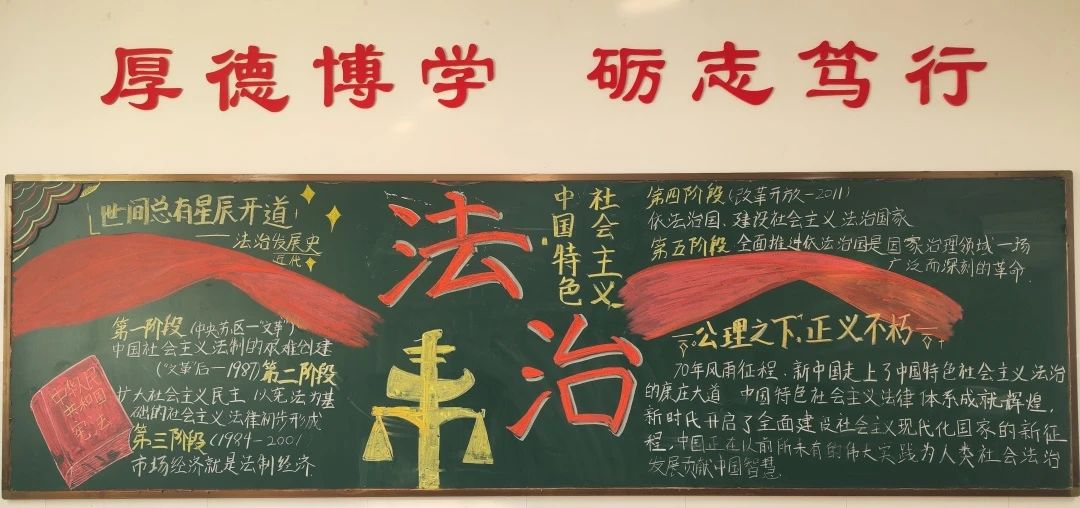 厚德博学 砺志笃行
世间总有星辰开道
——法治发展史
近代
第一阶段(中央苏区—"文革")
中国社会主义法制的艰难创建
("文革"后—1987)第二阶段
扩大社会主义民主 以宪法为基
础的社会主义法律初步形成
第三阶段(1984-2001)
市场经济就是法制经济
中华人民
共和国
宪法
法治
社会主义
中国特色
第四阶段(改革开放-2011)
依法治国、建设社会主义法治国家
第五阶段 全面推进依法治国是国家治理领域一场
广泛而深刻的革命.
公理之下,正义不朽
70年风雨征程,新中国走上了中国特色社会主义法治
的康庄大道 中国特色社会主义法律体系成就辉煌,
新时代开启了全面建设社会主义现代化国家的新征
程,中国正在以前所未有的伟大实践为人类社会法治
发展贡献中国智慧.